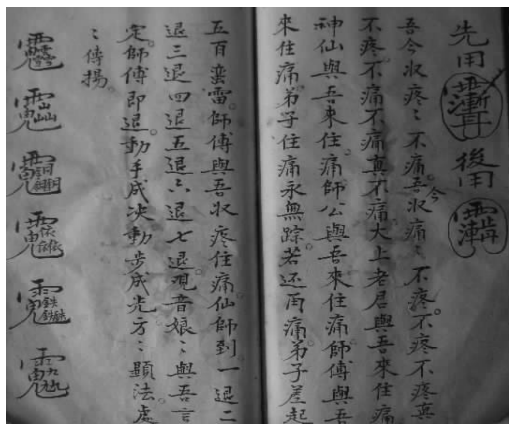 先用　後用
吾今收疼〻不痛吾今收痛〻不疼不疼不疼真
不疼不痛不痛真不痛大上老君與吾來住痛
神仙與吾來住痛師公與吾來住痛師傅與吾
來住痛弟子住痛永無踪若还再痛弟子差起
五百蛮雷師傅與吾收疼住痛仙師到一退二
退三退四退五退六退七退观音娘〻與吾言
定師傅即退動手成决動步成光方〻顯法處
〻傳揚